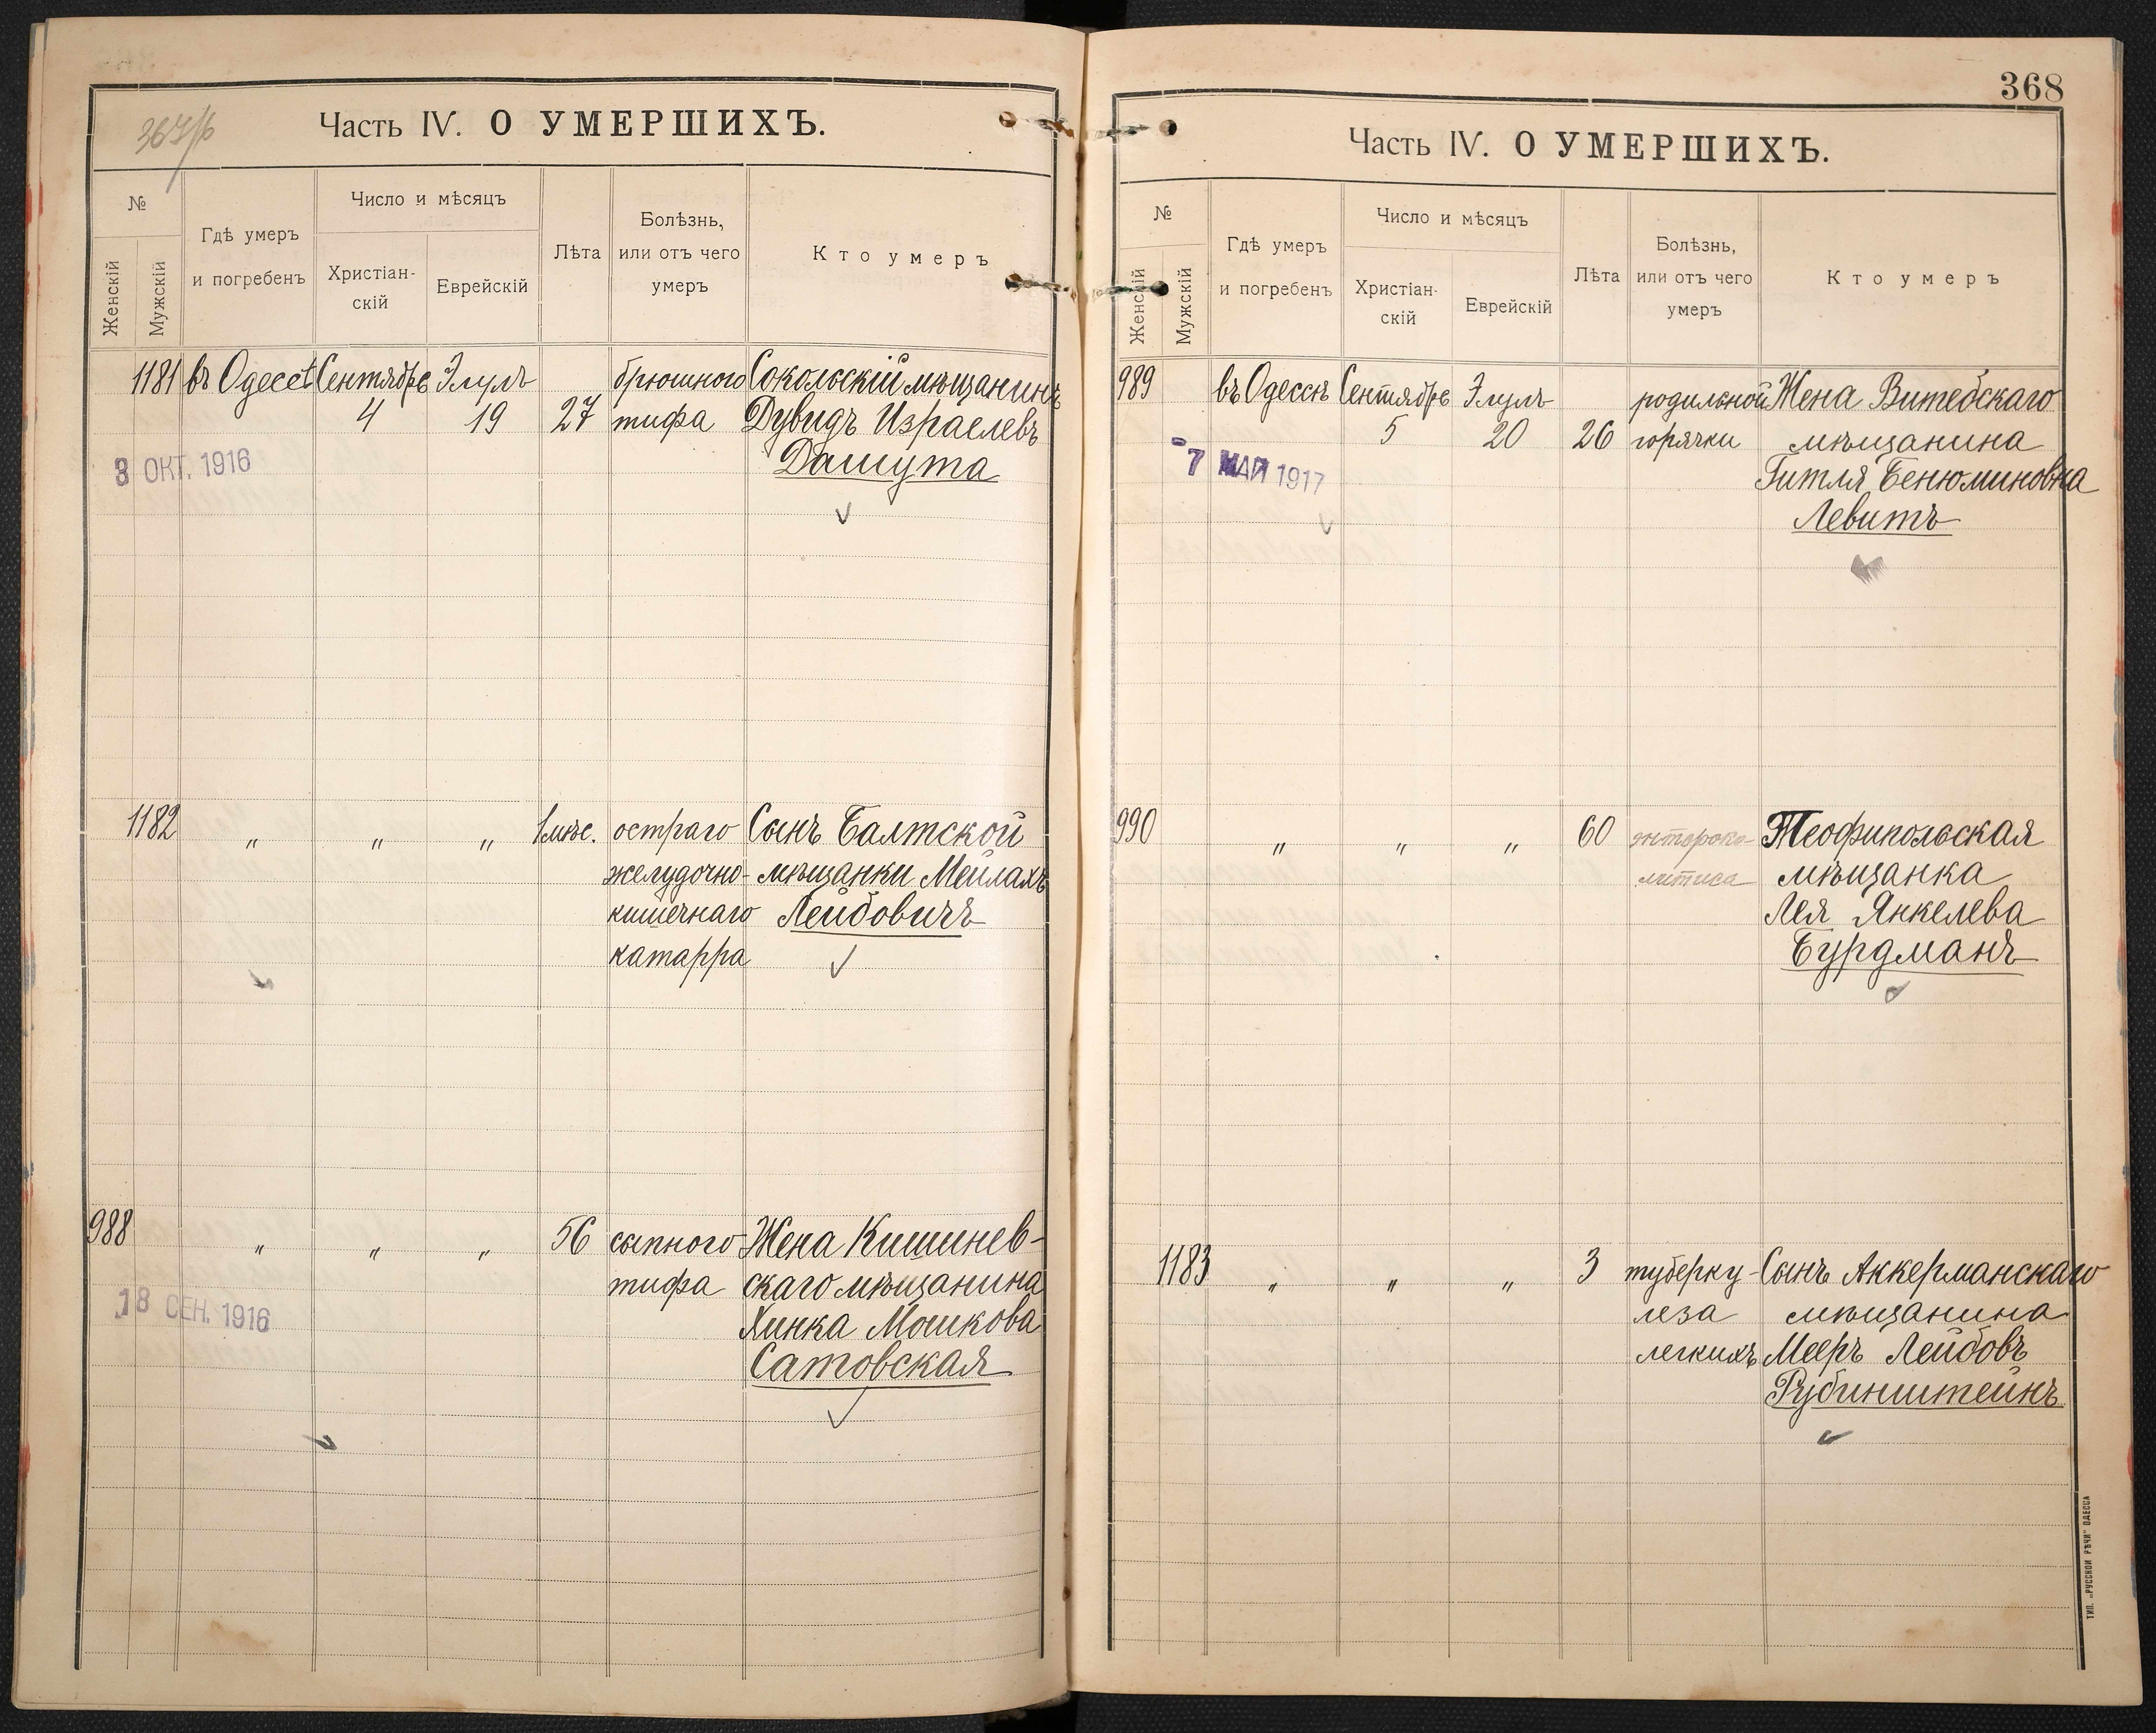 Часть IV. О УМЕРШИХЪ.
№
Женскій
Мужскій
Гдѣ умеръ
и погребенъ
Число и мѣсяцъ
Христіан-
скій
Еврейскій
Лѣта
Болѣзнь,
или отъ чего
умеръ
Кто умеръ
1181 въ Одессѣ Сентябрь Элулъ брюшного Сокольскій мѣщанинъ
4 19 27 тифа Дувидъ Израелевъ
Дашута
3 ОКТ. 1916
1182 " " " 1 мѣс. остраго Сынъ Балтской
желудочно- мѣщанки Мейлахъ
кишечнаго Лейбовичъ
катарра
988 " " " 56 сыпного Жена Кишинев-
тифа скаго мѣщанина
Хинка Мошкова
Сатовская
18 СЕН. 1916
368
Часть IV. О УМЕРШИХЪ.
№
Женскій
Мужскій
Гдѣ умеръ
и погребенъ
Число и мѣсяцъ
Христіан-
скій
Еврейскій
Лѣта
Болѣзнь,
или отъ чего
умеръ
Кто умеръ
989 въ Одессѣ Сентябрь Элулъ родильной Жена Витебскаго
5 20 26 горячки мѣщанина
7 МАЙ 1917 Гитля Бенюминовна
Левитъ
990 " " " 60 энтероко- Теофипольская
литиса мѣщанка
Лея Янкелева
Бурдманъ
1183 " " " 3 туберку- Сынъ Аккерманскаго
леза мѣщанина
легкихъ Мееръ Лейбовъ
Рубинштейнъ
ТИП. „РУССКОЙ РѢЧИ" ОДЕССА